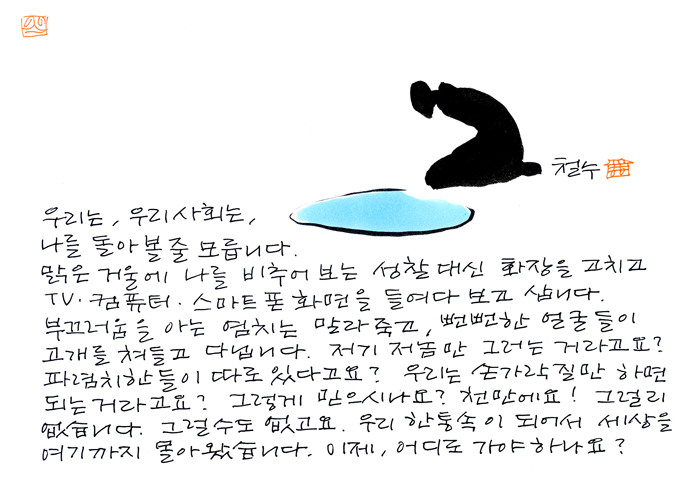 철수
우리는, 우리사회는,
나를 돌아볼 줄 모릅니다.
맑은 거울에 나를 비추어 보는 성찰 대신 화장을 고치고
TV·컴퓨터·스마트폰 화면을 들여다 보고 삽니다.
부끄러움을 아는 염치는 말라죽고, 뻔뻔한 얼굴들이
고개를 쳐들고 다닙니다. 저기 저놈만 그러는 거라고요?
파렴치한들이 따로 있다고요? 우리는 손가락질만 하면
되는거라고요? 그렇게 믿으시나요? 천만에요! 그럴리
없습니다. 그럴수도 없고요. 우리 한통속이 되어서 세상을
여기까지 몰아왔습니다. 이제, 어디로 가야하나요?